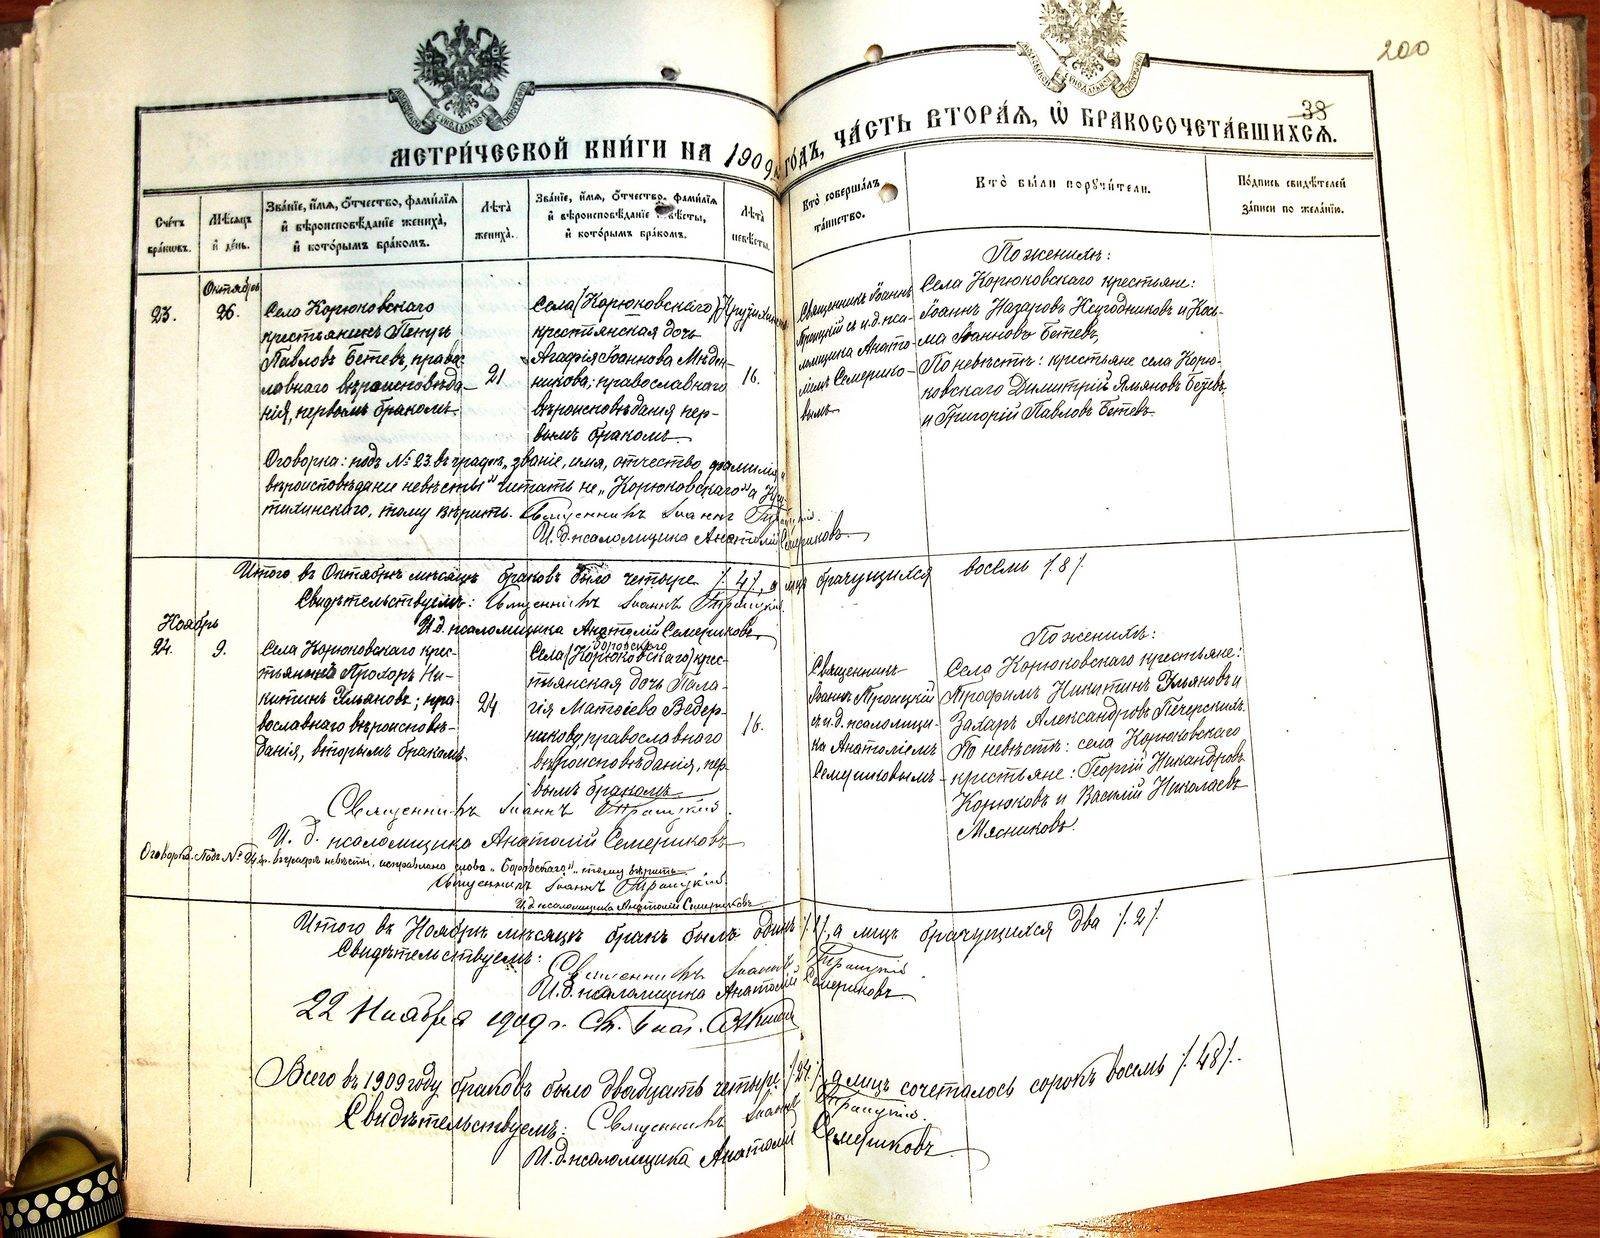 200
38
МЕТРИ́ЧЕСКОЙ КНИ́ГИ НА 1909й ГО́ДЪ, ЧА́СТЬ ВТОРА́Я, Ѡ БРАКОСОЧЕТА́ВШИХСЯ.
Сче́тъ бра́ковъ.
Мѣ́сяцъ и де́нь.
Зва́нїе, и́мя, о́тчество, фами́лїя
и вѣроисповѣ́данїе жениха̀,
и кото́рымъ бра́комъ.
Лѣ́та
жениха̀.
Зва́нїе, и́мя, о́тчество, фами́лїя
и вѣроисповѣ́данїе невѣ́сты,
и кото́рымъ бра́комъ.
Лѣ́та
невѣ́сты.
Кто̀ соверша́лъ
та́инство.
Кто̀ бы́ли поручи́тели.
По́дпись свидѣ́телей
за́писи по жела́нїю.
23.
Октябрь
26.
Села Корюковскаго
крестьянинъ
Павловъ Бетевъ, право-
славнаго вѣроисповѣда-
нія, первымъ бракомъ.
21
Села (Корюковскаго)
крестьянская дочь
Агафія Іоаннова Мѣден-
никова; православнаго
вѣроисповѣданія пер-
вымъ бракомъ.
16.
Священникъ Іоаннъ
Троицкій съ и.д. пса-
ломщика Анато-
ліемъ Семерико-
вымъ
По женихѣ:
Села Корюковскаго крестьяне:
Іоаннъ Назаровъ и Кось-
ма Іоанновъ Бетевъ,
По невѣстѣ: крестьяне села Корю-
ковскаго Димитрій Бетевъ
и Григорій Павловъ Бетевъ.
Оговорка: подъ № 23. въ графѣ „званіе, имя, отчество, фамилія,
вѣроисповѣданіе невѣсты" читать не „Корюковскаго" а
тихинскаго, тому вѣрить. Священникъ Іоаннъ Троицкій.
И. д. псаломщика Анатолій Семериковъ.
Итого въ Октябрѣ мѣсяцѣ браковъ было четыре /4/, а лицъ брачущихся восемь /8/
Свидѣтельствуемъ: Священникъ Іоаннъ Троицкій
И.д. псаломщика Анатолій Семериковъ
Ноябрь
24.
9.
Села Корюковскаго крес-
тьянинъ Прохоръ Ни-
китинъ Ульяновъ; пра-
вославнаго вѣроисповѣ-
данія, вторымъ бракомъ.
24
Боровскаго
Села (Корюковскаго) крес-
тьянская дочь Пала-
гія Матѳіева Ведер-
никова, православнаго
вѣроисповѣданія, пер-
вымъ бракомъ
16.
Священникъ
Іоаннъ Троицкій
съ и.д. псаломщи-
ка Анатоліемъ
Семериковымъ
По женихѣ:
Села Корюковскаго крестьяне:
Трофимъ Никитинъ Ульяновъ и
Захаръ Александровъ Печерскихъ.
По невѣстѣ: села Корюковскаго
крестьяне: Георгій Никандровъ
Корюковъ и Василій Николаевъ
Мясниковъ.
Священникъ Іоаннъ Троицкій.
И. д. псаломщика Анатолій Семериковъ
Оговорка. Подъ № 24 въ графѣ невѣсты, исправлено слова „Боровскаго", тому вѣрить
Священникъ Іоаннъ Троицкій
И.д. псаломщика Анатолій Семериковъ
Итого въ Ноябрѣ мѣсяцѣ бракъ былъ одинъ /1/, а лицъ брачущихся два /2/
Свидѣтельствуемъ:
Священникъ Іоаннъ Троицкій
И.д. псаломщика Анатолій Семериковъ
22 Ноября 1909 г.
Всего въ 1909 году браковъ было двадцать четыре /24/, а лицъ сочеталось сорокъ восемь /48/.
Свидѣтельствуемъ: Священникъ Іоаннъ Троицкій.
И.д. псаломщика Анатолій Семериковъ